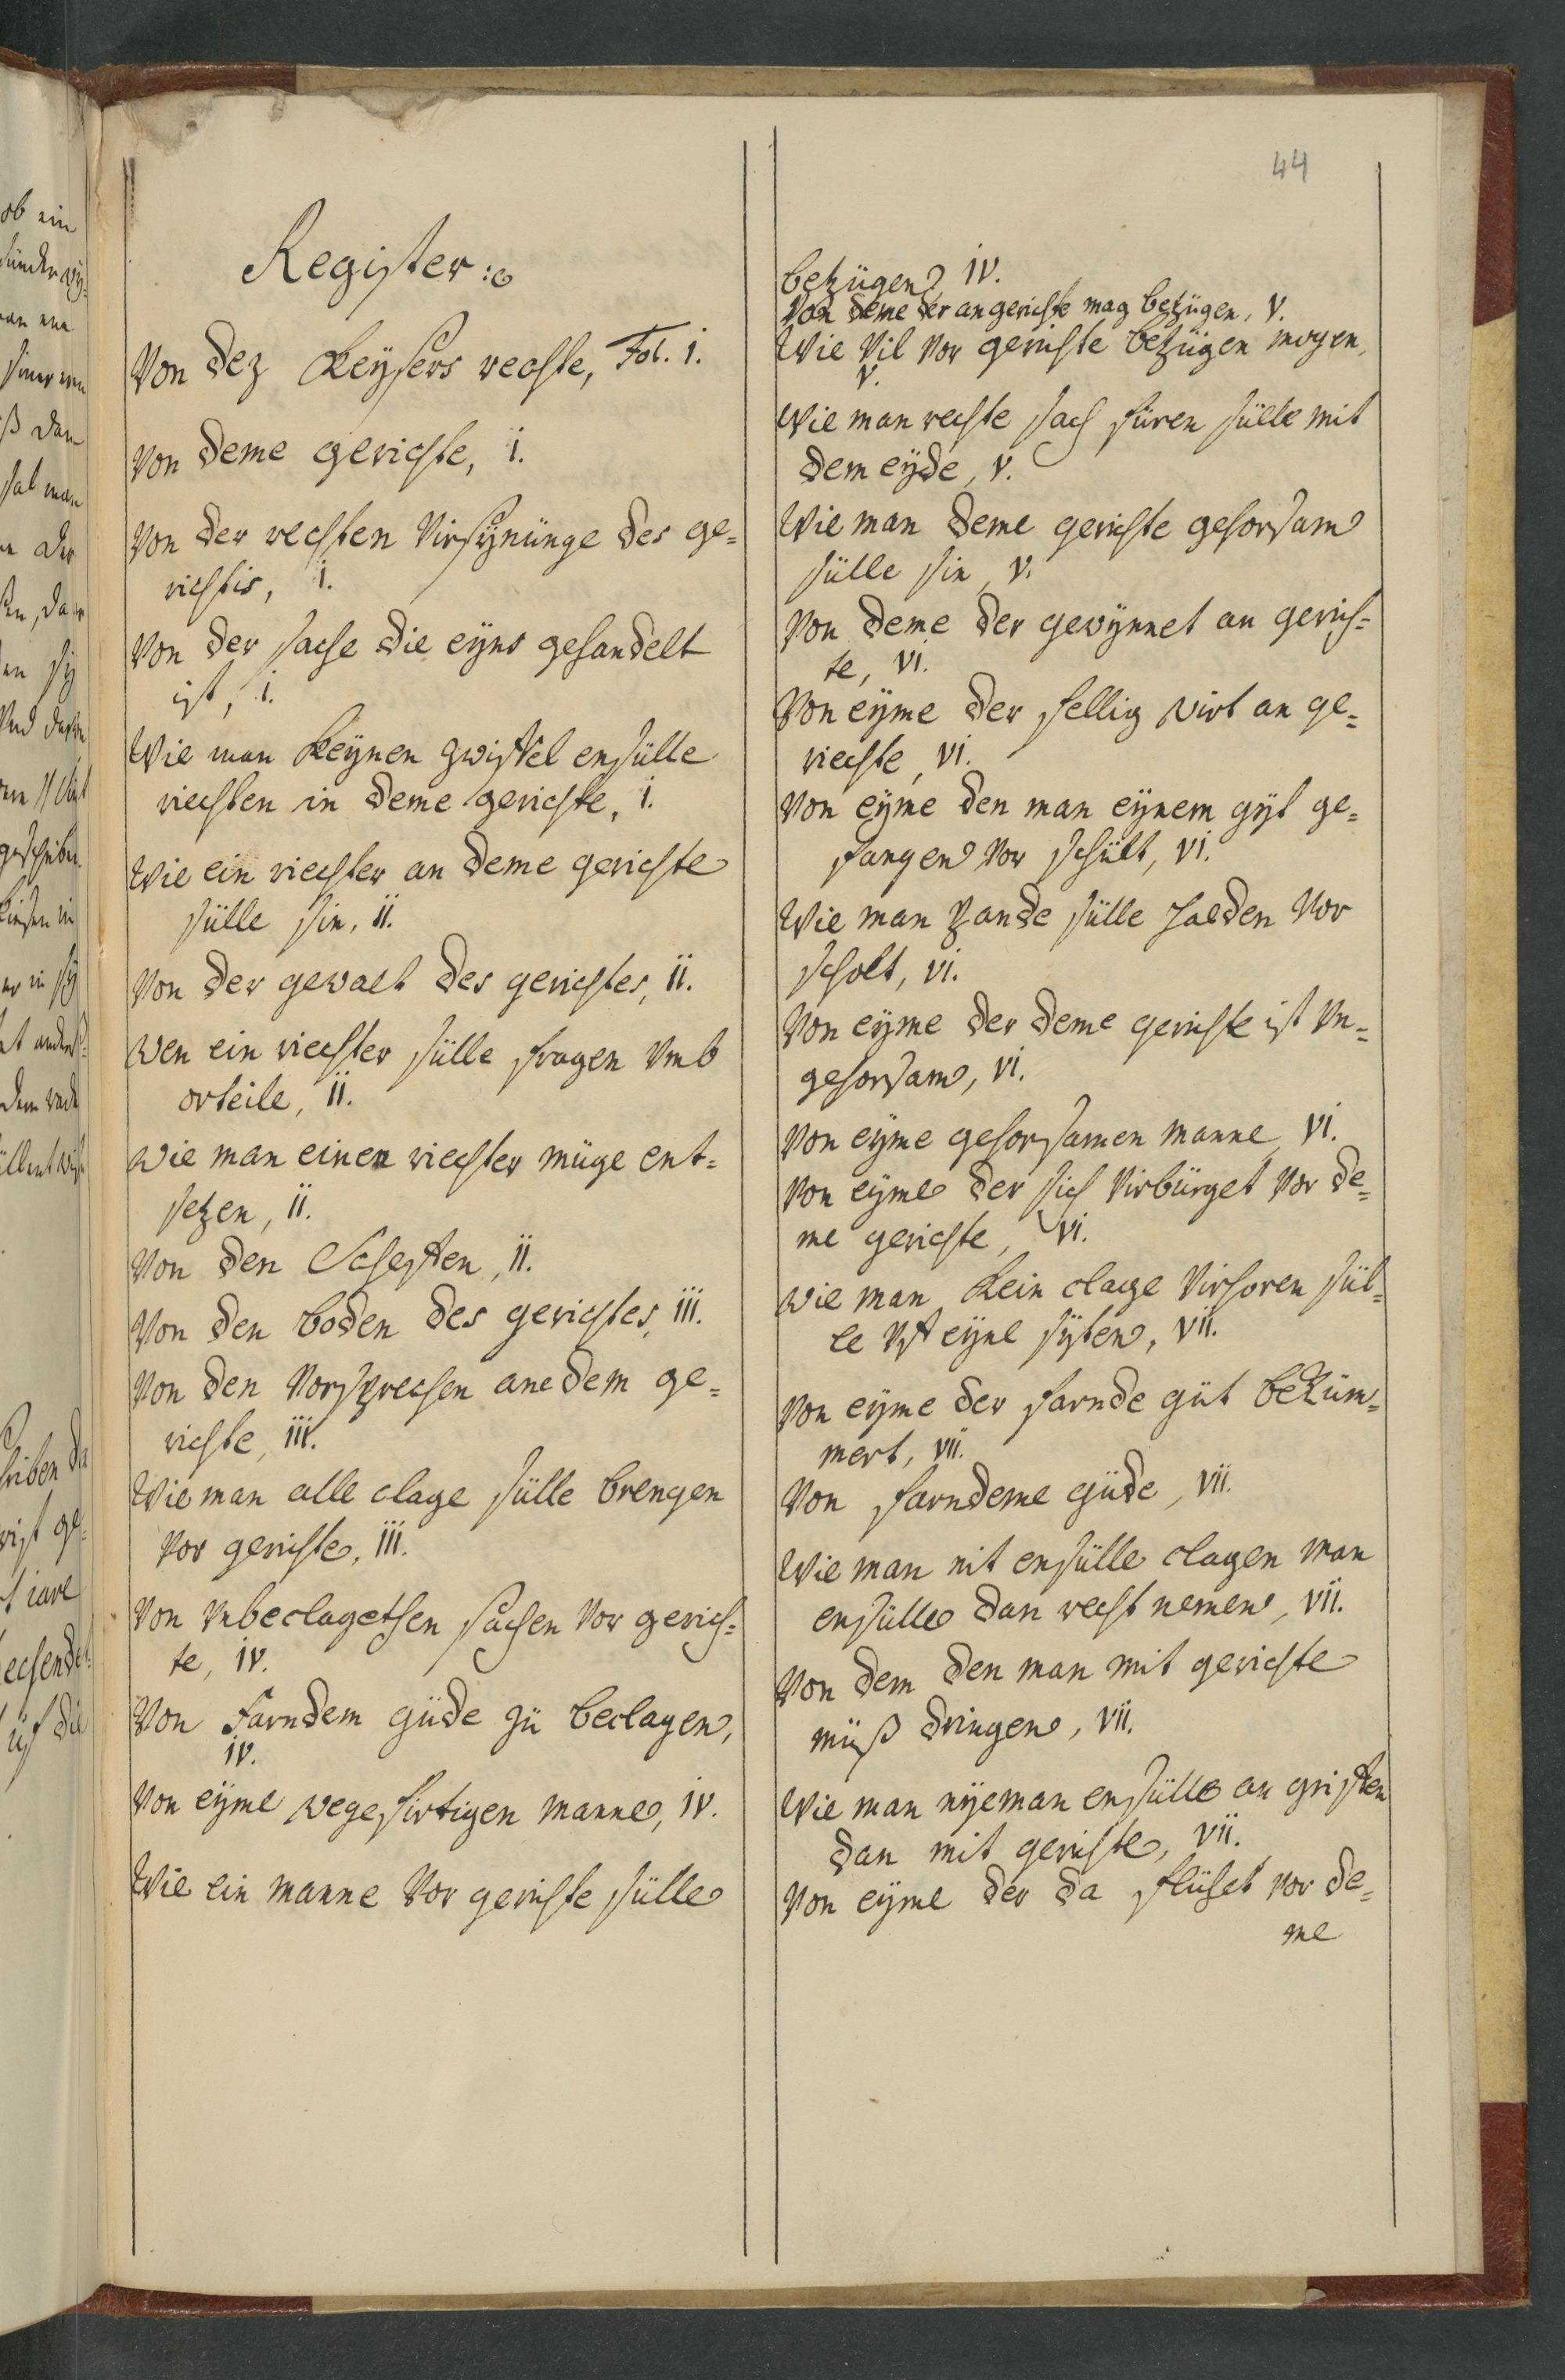 44
Register:
Von dez Keysers rechte, Fol. i.
Von deme gerichte, i.
Von der rechten Virsynünge des ge=
richtis, i.
Von der sache die eyns gehandelt
ist, i.
Wie man Keynen zwiffel ensülle
riechten in deme gerichte, i.
Wie ein riechter an deme gerichte
sülle sin, ii.
Von der gewalt des gerichtes, ii.
Wen ein riechter sülle fragen vmb
orteile, ii.
Wie man einen riechter müge ent=
setzen, ii.
Von den Scheffen, ii.
Von den boden des gerichtes, iii.
Von den Vorsprechen ane dem ge=
richte, iii.
Wie man alle clage sülle brengen
Vor gerichte, iii.
Von Vnbeclagethen sachen Vor gerich=
te, iv.
Von Farndem güde zü beclagen,
iv.
Von eyme wegefirtigen manne, iv.
Wie ein manne Vor gerichte sülle
betzügen, iv.
Von deme der an gerichte mag betzügen, v.
Wie Vil Vor gerichte betzügen mogen,
v.
Wie man rechte sach füren sülle mit
dem eyde, v.
Wie man deme gerichte gehorsam
sülle sin, v.
Von deme der gewynnet an gerich=
te, vi.
Von eyme der fellig wirt an ge=
riechte, vi.
Von eyme den man eynem gyt ge=
fangen Vor schült, vi.
Wie man pande sülle halden Vor
scholt, vi.
Von eyme der deme gerichte ist Vn=
gehorsam, vi.
Von eyme gehorsamen manne, vi.
Von eyme der sich Virbürget Vor de=
me gerichte, vi.
Wie man Kein clage Virhoren sül=
le Vff eyne syten, vii.
Von eyme der farnde güt beküm=
mert, vii.
Von farndeme güde, vii.
Wie man nit ensülle clagen man
ensülle dan recht nemen, vii.
Von dem den man mit gerichte
müß dringen, vii.
Wie man nyeman ensülle an griffen
dan mit gerichte, vii.
Von eyme der da flühet vor de=
me